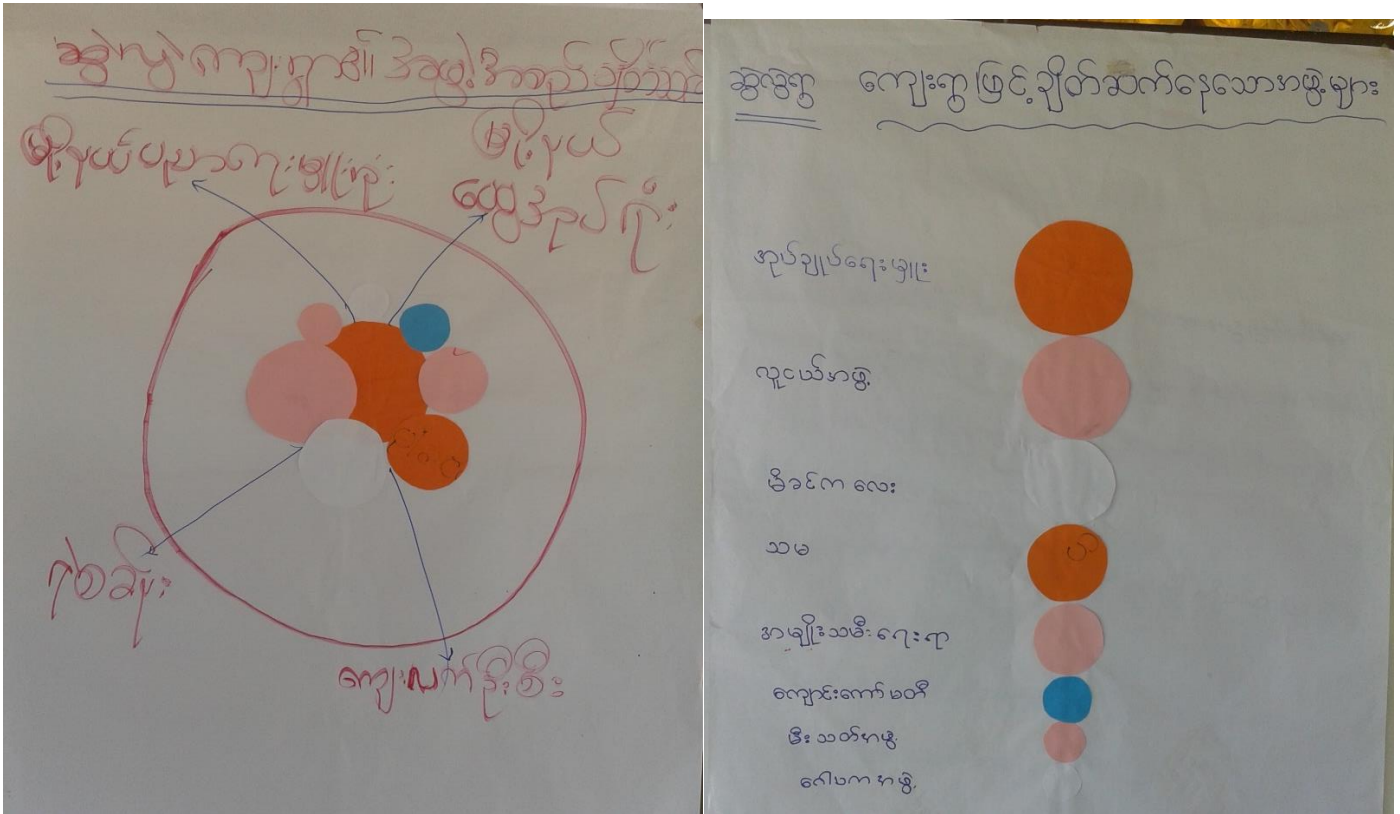 ဆွဲလွဲကျေးရွာ၏ အဖွဲ့အစည်းချိတ်ဆက်
မြို့နယ်ပညာရေးမှူးရုံး
မြို့နယ်
ထွေအုပ်ရုံး
ရဲစခန်း
ကျေးလက်ဦးစီး
ဆွဲလွဲရွာ ကျေးရွာဖြင့်ချိတ်ဆက်နေသောအဖွဲ့များ
အုပ်ချုပ်ရေးမှူး
လူငယ်အဖွဲ့
မိခင်ကလေး
သမ
အမျိုးသမီးရေးရာ
ကျောင်းကော်မတီ
မီးသတ်အဖွဲ့
ဂေါပကအဖွဲ့